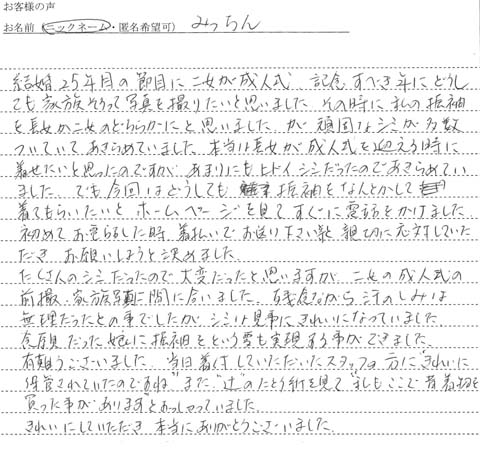 お客様の声
お名前(ニックネーム・匿名希望可) みっちん
結婚25年目の節目に二女が成人式 記念すべき年にどうし
ても家族そろって写真を撮りたいと思いました その時に私の振袖
を長女か二女のどちらかにと思いました が 頑固なシミが多数
ついていて あきらめていました 本当は長女が成人式を迎える時に
着せたいと思ったのですが あまりにもヒドイ シミだったのであきらめてい
ました でも今回はどうしても 振袖をなんとかして
着てもらいたいと ホームページを見て すぐに電話をかけました
初めてお電話した時 着払いでお送り下さい 親切に応対していた
だき お願いしようと決めました
たくさんのシミだったので大変だったと思いますが 二女の成人式の
前撮・家族写真に間に合いました 残念ながら 汗のしみは
無理だったとの事でしたが シミは見事にきれいになっていました
念願だった娘に振袖をという夢も実現する事ができました
有難うございました 当日着付していただいたスタッフの方に"きれいに
保管されていたのですね" また "辻"のたとう紙を見て "私もここで 着物を
買った事があります"とおっしゃっていました
きれいにしていただき 本当にありがとうございました